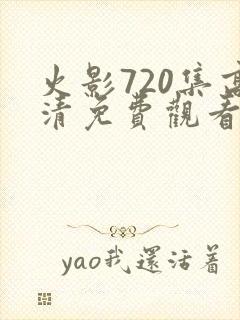 火影720集高
清免費觀看
yao我還活着